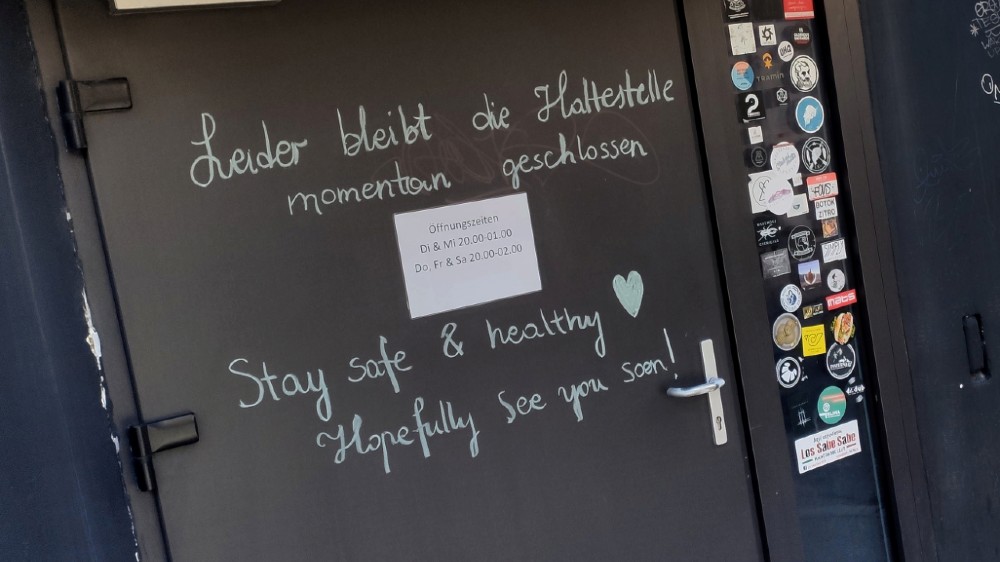 Leider bleibt die Haltestelle
momentan geschlossen
Öffnungszeiten
Di & Mi 20.00-01.00
Do, Fr & Sa 20.00-02.00
Stay safe & healthy
Hopefully see you soon!
2
Los Sabe Sabe